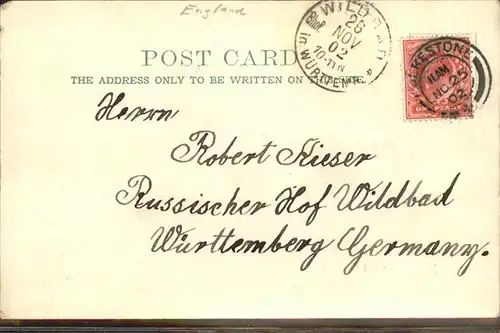 England
POST CARD
THE ADDRESS ONLY TO BE WRITTEN ON
WILDBAD
26
NOV
02
WÜRTTEMB.
FOLKESTONE
NO 25
02
Herrn
Robert Kieser
Russischer Hof Wildbad
Württemberg Germany.